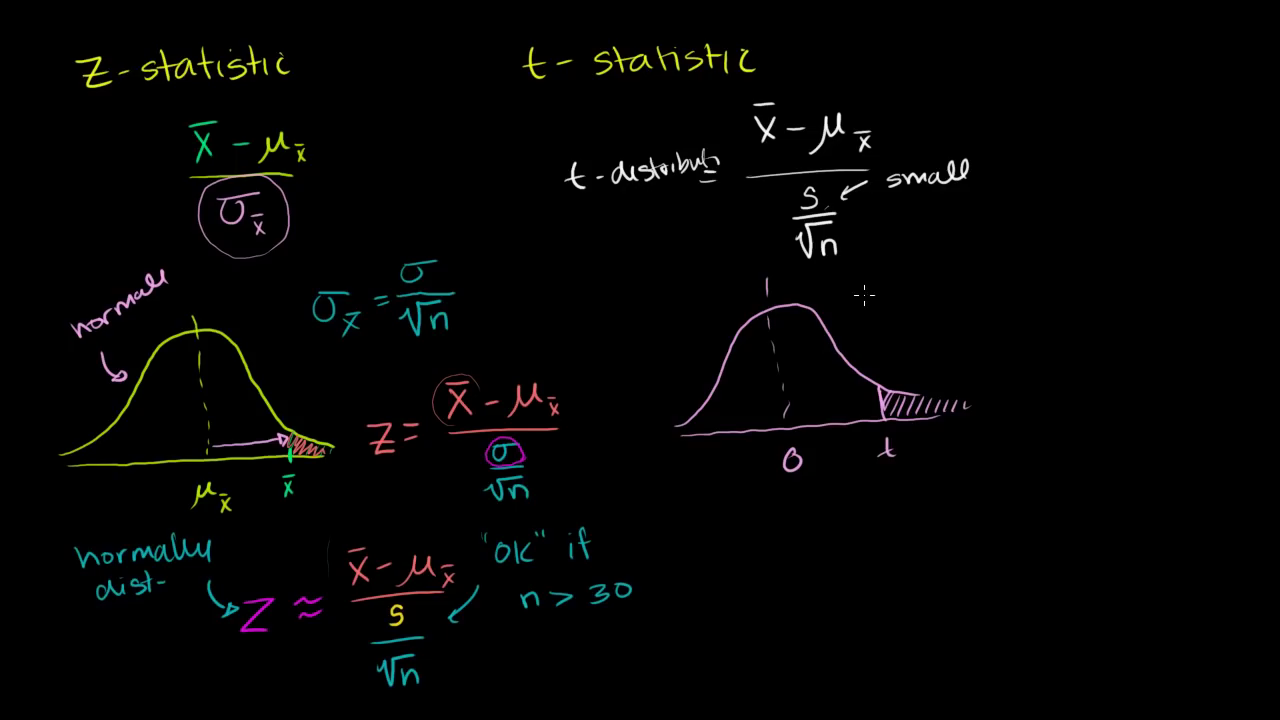 z-statistic
x̄ - μx̄
σx̄
normal
σx̄ = σ/√n
μx̄
x̄
z = (x̄ - μx̄)/(σ/√n)
normally
dist-
z ≈ (x̄ - μx̄)/(s/√n)
"OK" if
n > 30
t-statistic
t-distributn
(x̄ - μx̄)/(s/√n)
small
0
t